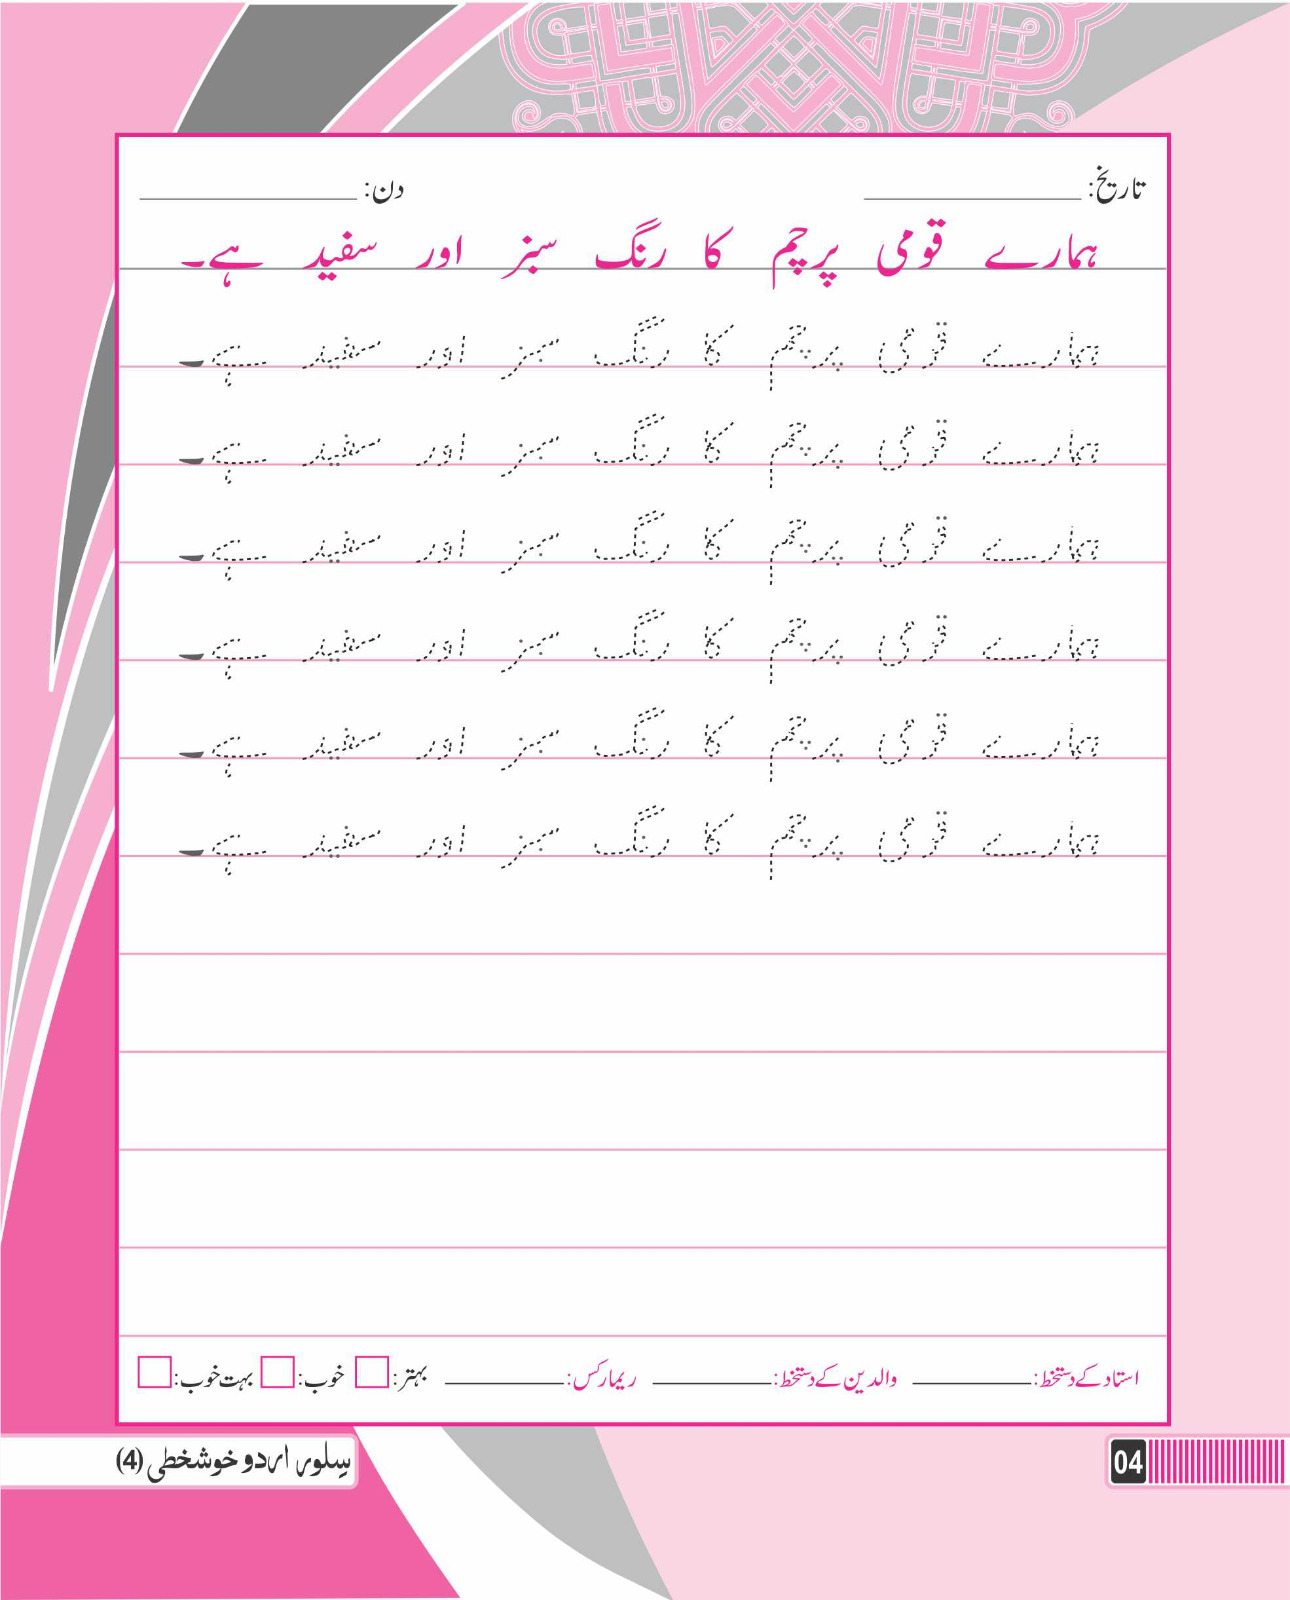 تاریخ: ____________ دن: ____________
ہمارے قومی پرچم کا رنگ سبز اور سفید ہے۔
ہمارے قومی پرچم کا رنگ سبز اور سفید ہے۔
ہمارے قومی پرچم کا رنگ سبز اور سفید ہے۔
ہمارے قومی پرچم کا رنگ سبز اور سفید ہے۔
ہمارے قومی پرچم کا رنگ سبز اور سفید ہے۔
ہمارے قومی پرچم کا رنگ سبز اور سفید ہے۔
ہمارے قومی پرچم کا رنگ سبز اور سفید ہے۔
استاد کے دستخط: ________ والدین کے دستخط: ________ ریمارکس: ________ بہتر: خوب: بہت خوب:
04
سلور اردو خوشخطی (4)